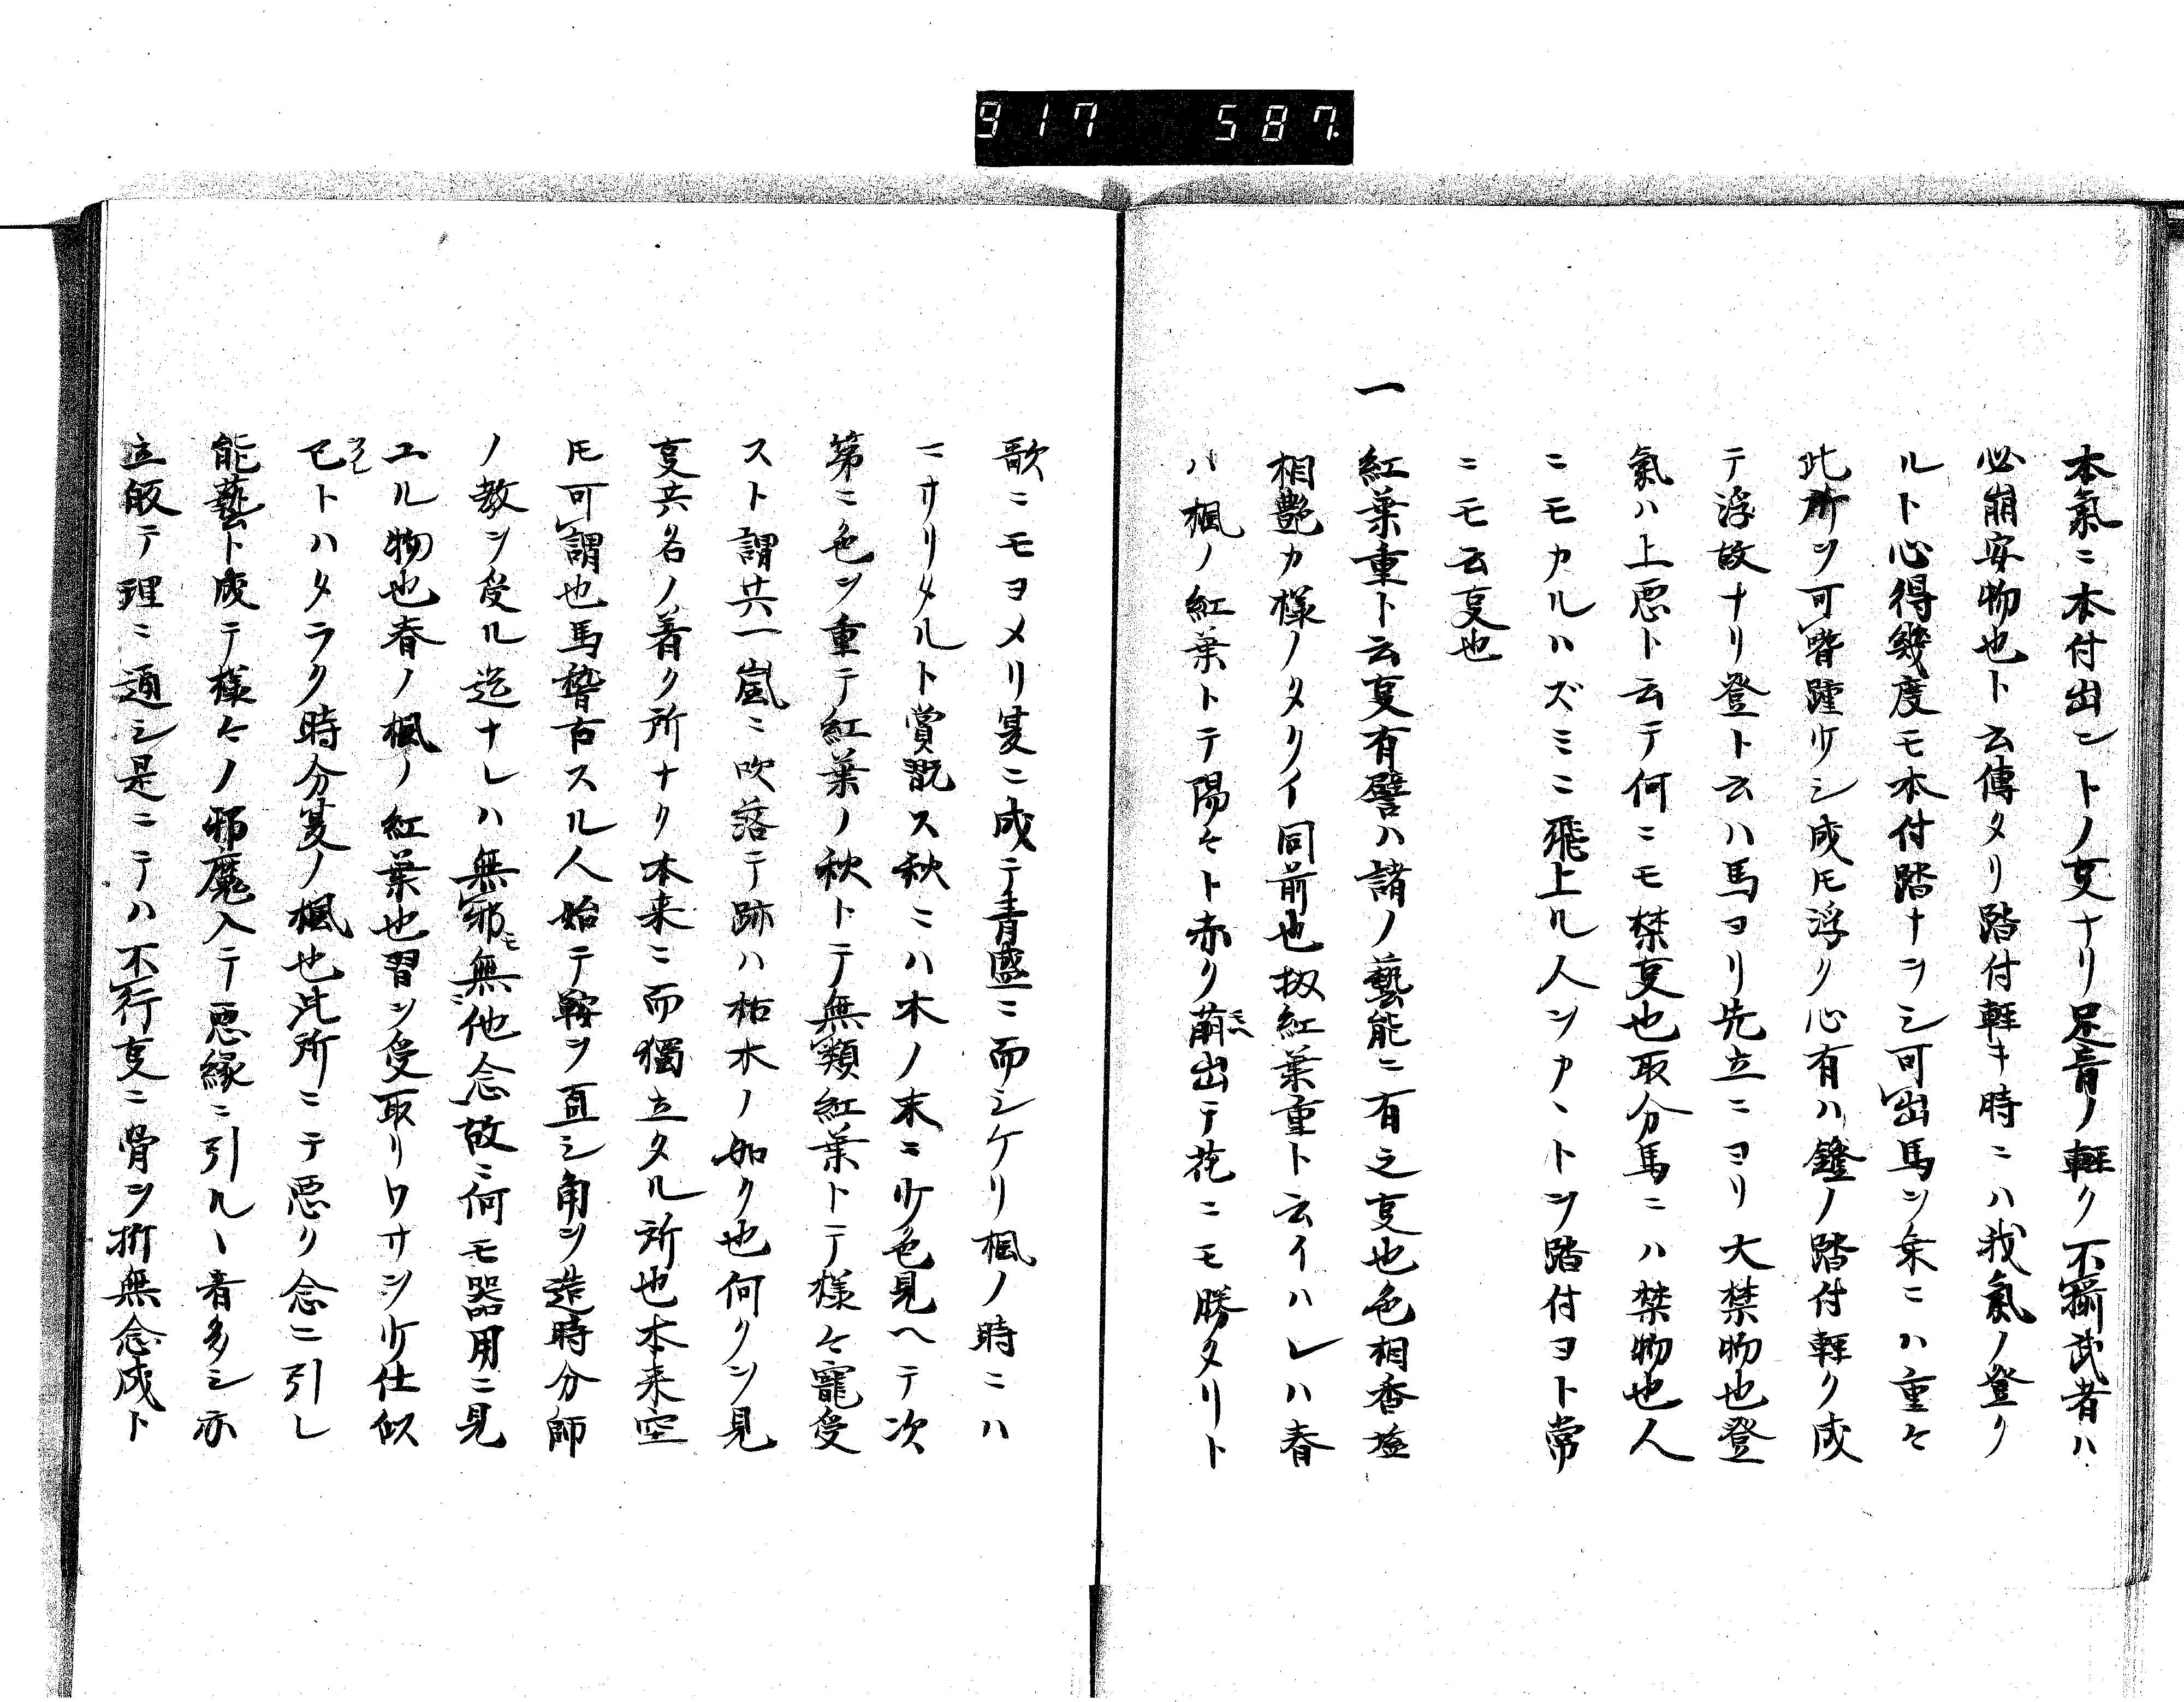 917 587.
本氣ニ本付出ントノ㕝ナリ足音ノ軽ク不揃武者ハ
必崩安物也ト云傳タリ踏付軽キ時ニハ我氣ノ登ク
ルト心得幾度モ本付踏ナヲシ可出馬ヲ乗ニハ重々
此所ヲ可
成𪜈浮ク心有ハ鐙ノ踏付軽ク成
テ浮故ナリ登ト云ハ馬ヨリ先立ニヨリ大禁物也登
氣ハ上悪ト云テ何ニモ禁㕝也取分馬ニハ禁物也人
ニモカルハズミニ飛上ル人ヲアヽトヲ踏付ヨト常
ニモ云㕝也
一 紅葉重ト云㕝有譬ハ諸ノ藝能ニ有之㕝也色相香
相艶カ様ノタクイ同前也扨紅葉重ト云イハレハ春
ハ楓ノ紅葉トテ陽々ト赤ク萠出テ花ニモ勝タリト
歌ニモヨメリ夏ニ成テ青盛ニ而シケリ楓ノ時ニハ
ニサリタルト賞翫ス秋ニハ木ノ末ニ少色見ヘテ次
第ニ色ヲ重テ紅葉ノ秋トテ無類紅葉トテ様々寵愛
スト謂共一嵐ニ吹落テ跡ハ枯木ノ如ク也何クヲ見
㕝共名ノ着ク所ナク本来ニ而獨立タル所也本来空
𪜈可謂也馬稽古スル人始テ鞍ヲ直シ角ヲ造時分師
ノ教ヲ受ル迄ナレハ無邪モ無他念故ニ何モ器用ニ見
ユル物也春ノ楓ノ紅葉也習ヲ受取リワサヲ少仕似
トハタラク時分夏ノ楓也此所ニテ悪ク念ニ引レ
能藝ト成テ様々ノ邪魔入テ悪縁ニ引ル丶者多シ亦
立皈テ理ニ通シ是ニテハ不行㕝ニ骨ヲ折無念成ト